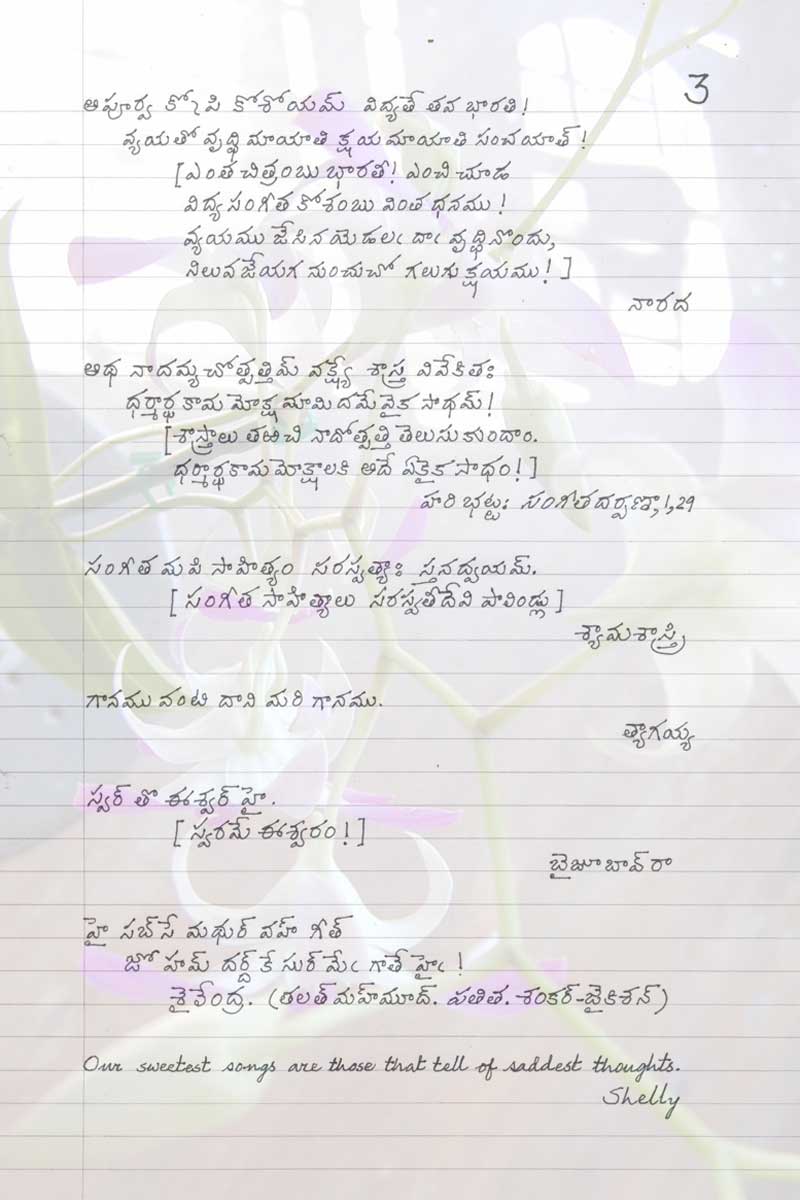 3
అపూర్వ కోఽపి కోశోయమ్ విద్యతే తవ భారతి!
వ్యయతో వృద్ధి మాయాతి క్షయమాయాతి సంచయాత్!
[ఎంత చిత్రంబు భారతీ! ఎంచి చూడ
విద్య సంగీత కోశంబు వింత ధనము!
వ్యయము జేసిన యెడలఁ దాఁ వృద్ధినొందు,
నిలువ జేయగ నుంచుచో గలుగు క్షయము!]
నారద
అథ నాదమ్య చోత్పత్తిమ్ వక్ష్యే శాస్త్ర వివేకితః
ధర్మార్థకామ మోక్షమామిదమేవైక సాధమ్!
[శాస్త్రాలు తఱచి నాదోత్పత్తి తెలుసుకుందాం.
ధర్మార్థకామమోక్షాలకి అదే ఏకైక సాధం!]
హరి భట్టుః సంగీతదర్పణా, 1, 29
సంగీత మపి సాహిత్యం సరస్వత్యాః స్తనద్వయమ్.
[సంగీత సాహిత్యాలు సరస్వతీదేవి పాలిండ్లు]
శ్యామశాస్త్రి
గానము వంటి దాని మరి గానము.
త్యాగయ్య
స్వర్ తో ఈశ్వర్ హై.
[స్వరమే ఈశ్వరం!]
బైజూ బావ్‌రా
హై సబ్‌సే మధుర్ వహ్ గీత్
జో హమ్ దర్ద్ కే సుర్ మేఁ గాతే హైఁ!
శైవేంద్ర. (తలత్ మహ్‌మూద్. పతిత. శంకర్-జైకిశన్)
Our sweetest songs are those that tell of saddest thoughts.
Shelly